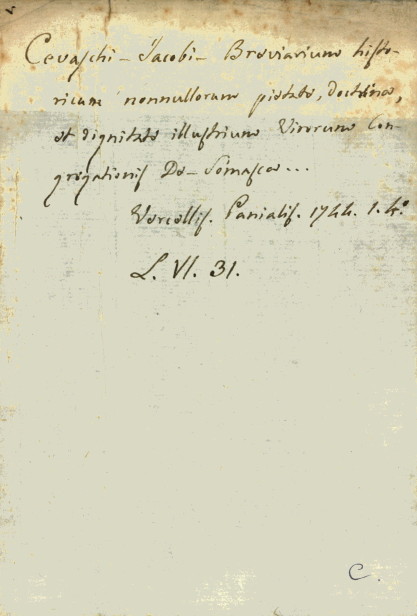 Cevaschi - Jacobi - Breviarium histo-
ricum nonnullorum pietate, doctrina,
et dignitate illustrium Virorum Con-
gregationis De - Somasca...
Vercellis. Panialis. 1744. 1. 4.º
L. VI. 31.
C.